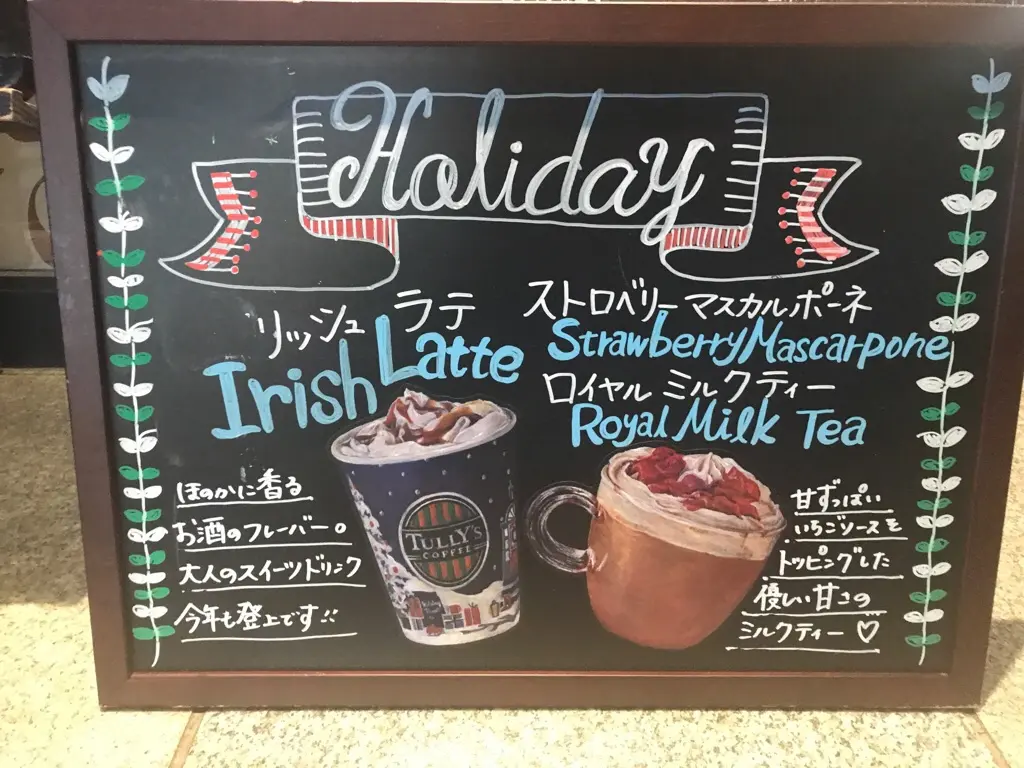 Holiday
リッシュ ラテ
Irish Latte
ほのかに香る
お酒のフレーバー。
大人のスイーツドリンク
今年も登上です!!
TULLY'S
COFFEE
ストロベリーマスカルポーネ
Strawberry Mascarpone
ロイヤルミルクティー
Royal Milk Tea
甘ずっぱい
いちごソースを
トッピングした
優しい甘さの
ミルクティー♡